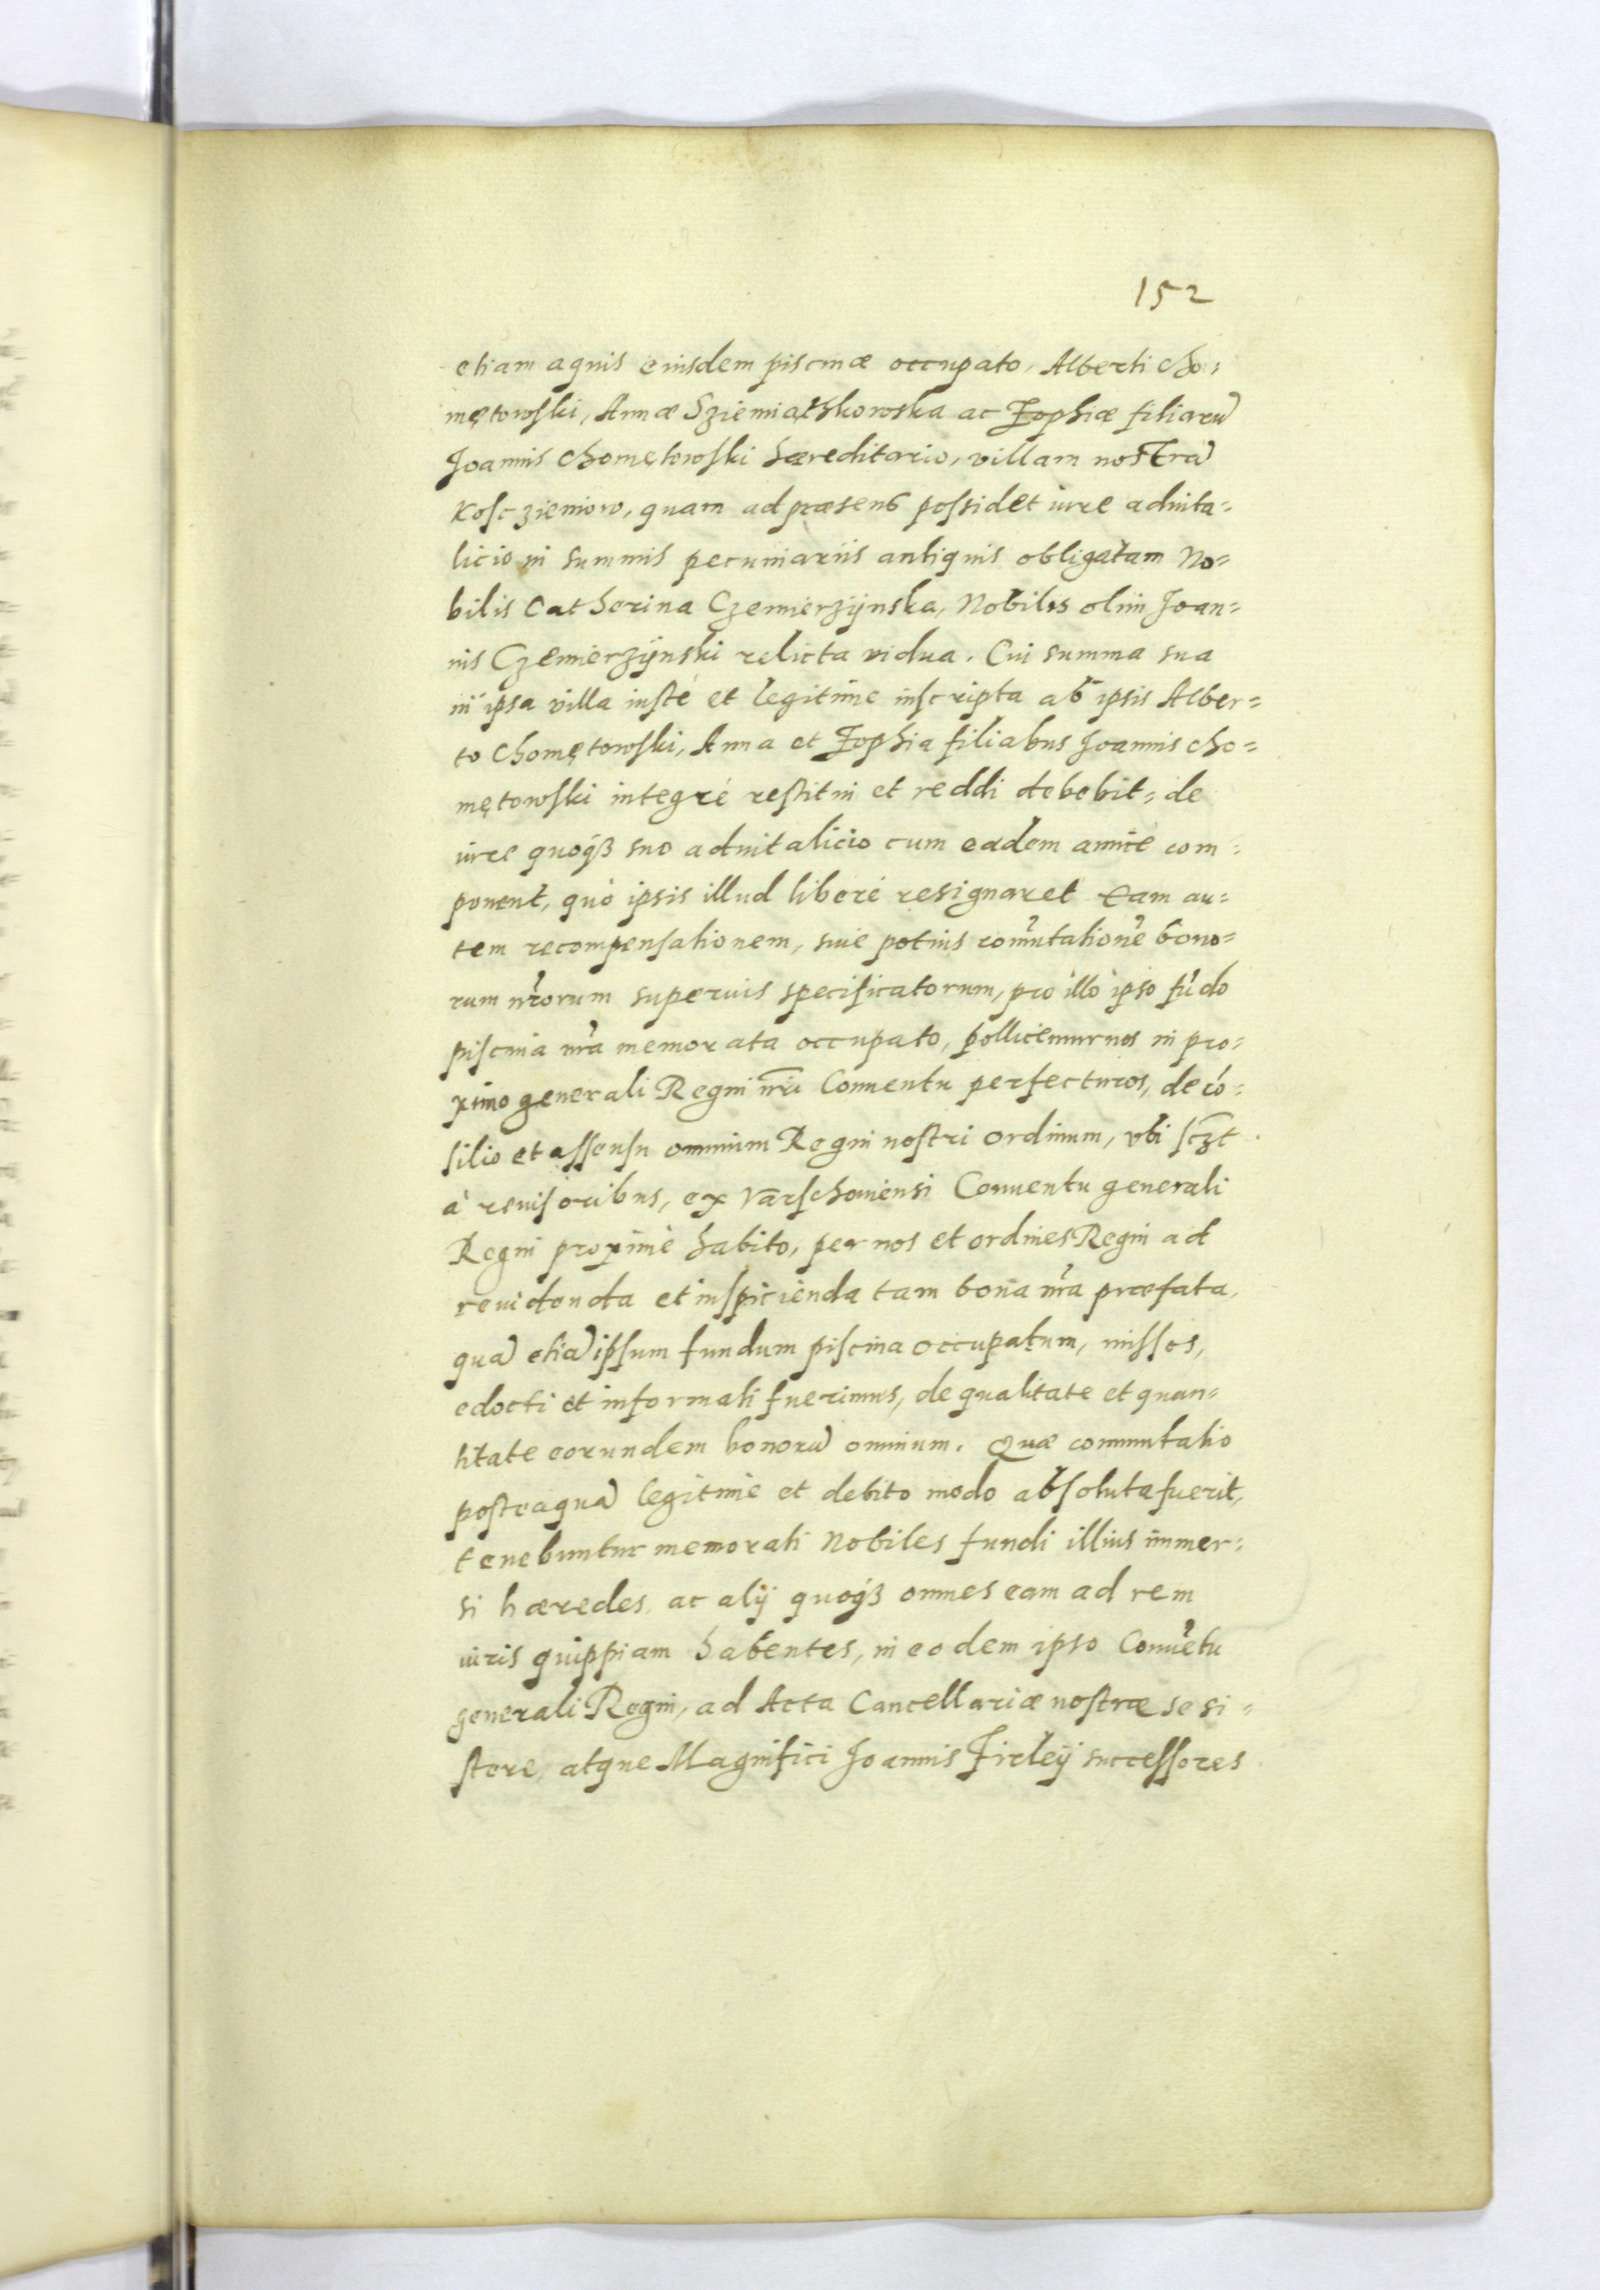 152
etiam aquis eiusdem piscinæ occupato, Alberti Cho-
mętowski, Annæ Sziemiathkowska ac Zophiæ filiarũ
Joannis Chomętowski hæreditario, villam nostrã
Kosczieniow, quam ad præsens possidet iure aduita=
licio in summis pecuniariis antiquis obligatam No=
bilis Catherina Czemierzÿnska, Nobilis olim Joan=
nis Czemierzÿnski relicta vidua. Cui summa sua
in ipsa villa iustè et legitime inscripta ab ipsis Alber=
to Chomętowski, Anna et Zophia filiabus Joannis Cho=
mętowski integrè restitui et reddi debebit= de
iure quoqȝ suo aduitalicio cum eadem amicè com=
ponent, quò ipsis illud liberè resignaret Eam au=
tem recompensationem, siue potius com̃utationẽ bono=
rum nr̃orum superius specificatorum, pro illo ipso fũdo
piscina nr̃a memorata occupato, pollicemur nos in pro=
ximo generali Regni nr̃i Conuentu perfecturos, de cõ=
silio et assensu omnium Regni nostri ordinum, vbi sczt
à reuisoribus, ex Varschouiensi Conuentu generali
Regni proximè habito, per nos et ordines Regni ad
reuidenda et inspicienda tam bona nr̃a præfata,
quã etiã ipsum fundum piscina occupatum, missos,
edocti et informati fuerimus, de qualitate et quan=
titate eorundem bonorũ omnium. Quæ commutatio
posteaquã legitime et debito modo absoluta fuerit,
tenebuntur memorati Nobiles fundi illius immer=
si hæredes, ac alÿ quoqȝ omnes eam ad rem
iuris quippiam habentes, in eodem ipso Conuẽtu
generali Regni, ad Acta Cancellariæ nostræ se si=
stere, atque Magnifici Joannis Firleÿ successores